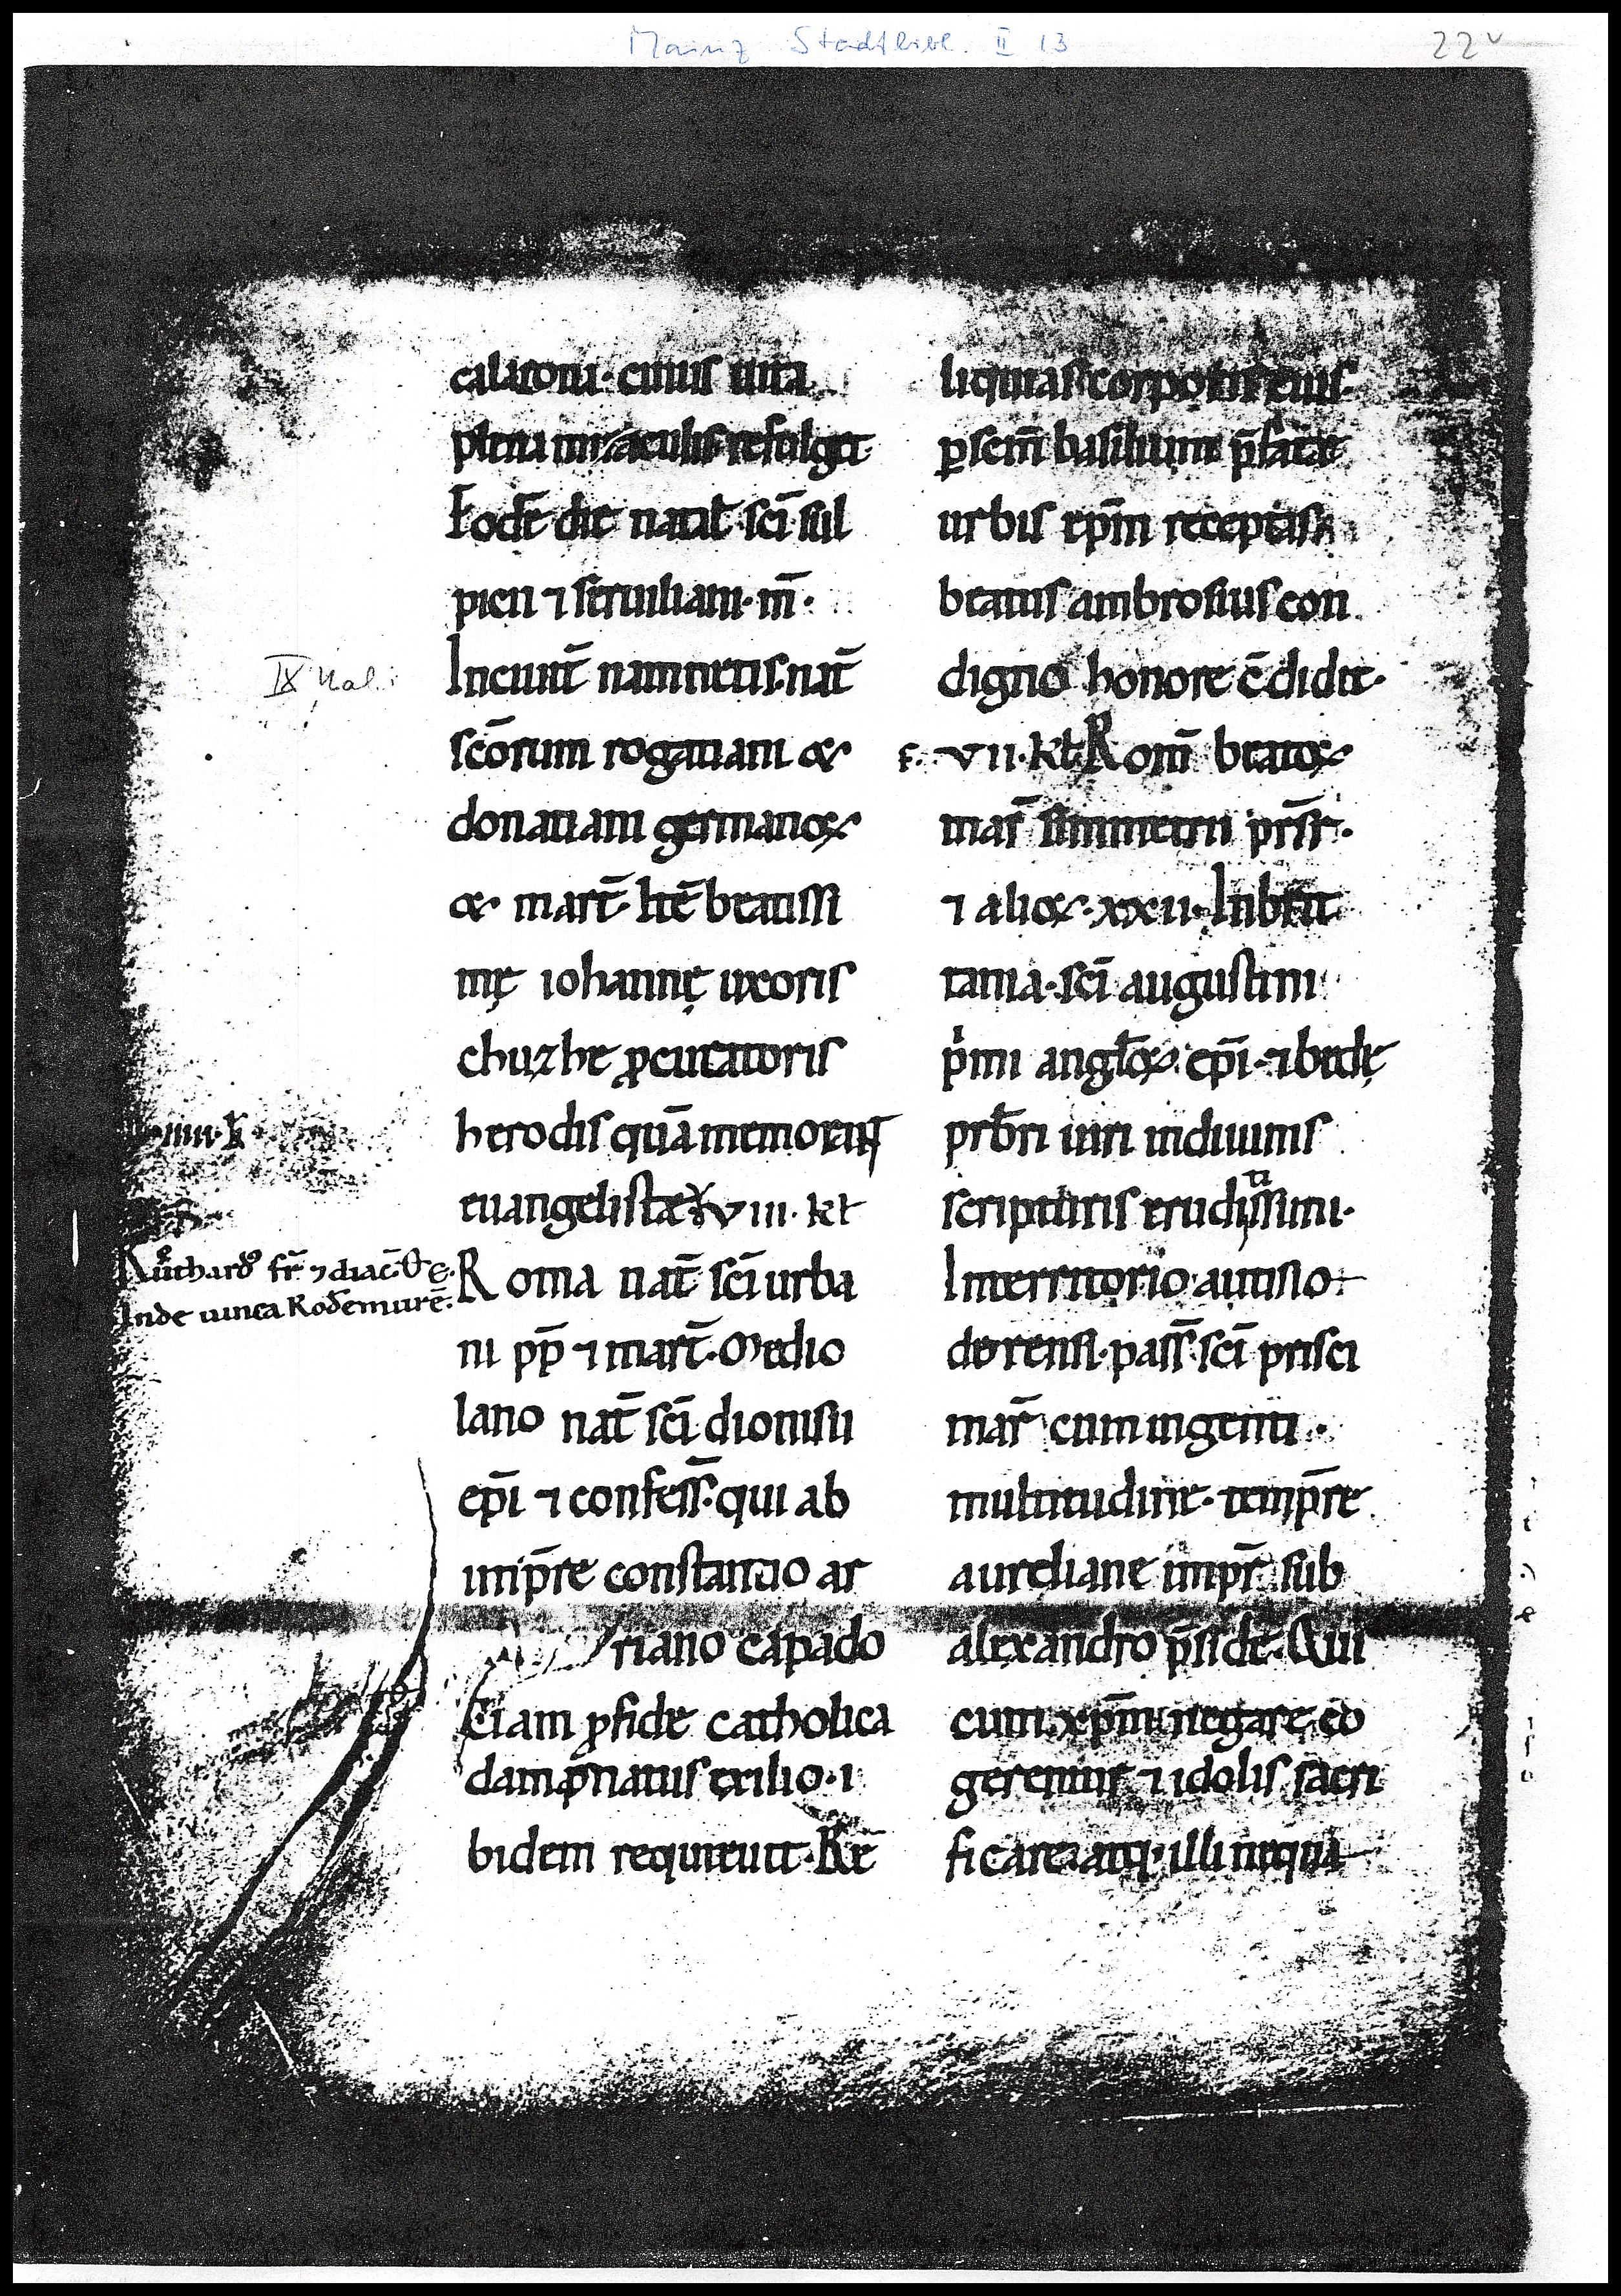 Mainz Stadtbibl. II 13
22v
calatorii· cuius uita
plena miraculis refulget·
Eodē die natal̄ sc̄i sul
picii ⁊ seruiliani· m̄·
In ciuit̄ namnetis· nat̄
sc̄orum rogatiani &
donatiani germanoꝝ
& mart̄· Itē beatissi
mę iohannę uxoris
chuzhe ꝓcuratoris
herodis quā memorat
euangelista VIII· kł
Roma nat̄ sc̄i urba
ni pp̄ ⁊ mart̄· Medio
lano nat̄ sc̄i dionisii
ep̄i ⁊ confess̄· qui ab
imp̄re constantio ar
riano capado
ciam ꝓ fide catholica
dampnatus exilio· i
bidem requieuit· Re
IX Kal.
iiii· k̄
Růthardꝰ fr̄ ⁊ diac̄
Inde uinea Rod̄emurē
liquias corporis eius
ꝑ sc̄m basilium p̄fate
urbis ep̄m receptas
beatus ambrosius con
digno honore c̄didit·
F· VII· kł Rom̄ beatoꝝ
mar̄ simmetrii p̄rs̄r·
⁊ alioꝝ· xxii· In brit
tania· sc̄i augustini
p̓mi angl̄oꝝ ep̄i· ⁊ bedę
prb̄ri uiri in diuinis
scripturis eruditissimi·
In territorio autisio
dorensi· pass̄· sc̄i prisci
mar̄ cum ingenti·
multitudine· temp̄re
aureliane imp̄r· sub
alexandro p̄side· Qui
cum xp̄m negare co
gerentur ⁊ idolis sacri
ficare· atq· illi nequa